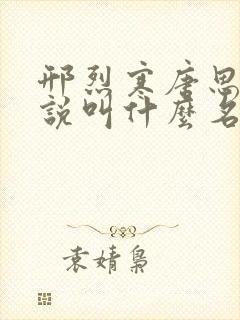 邢烈寒唐思
說叫什麼名
袁婧梟